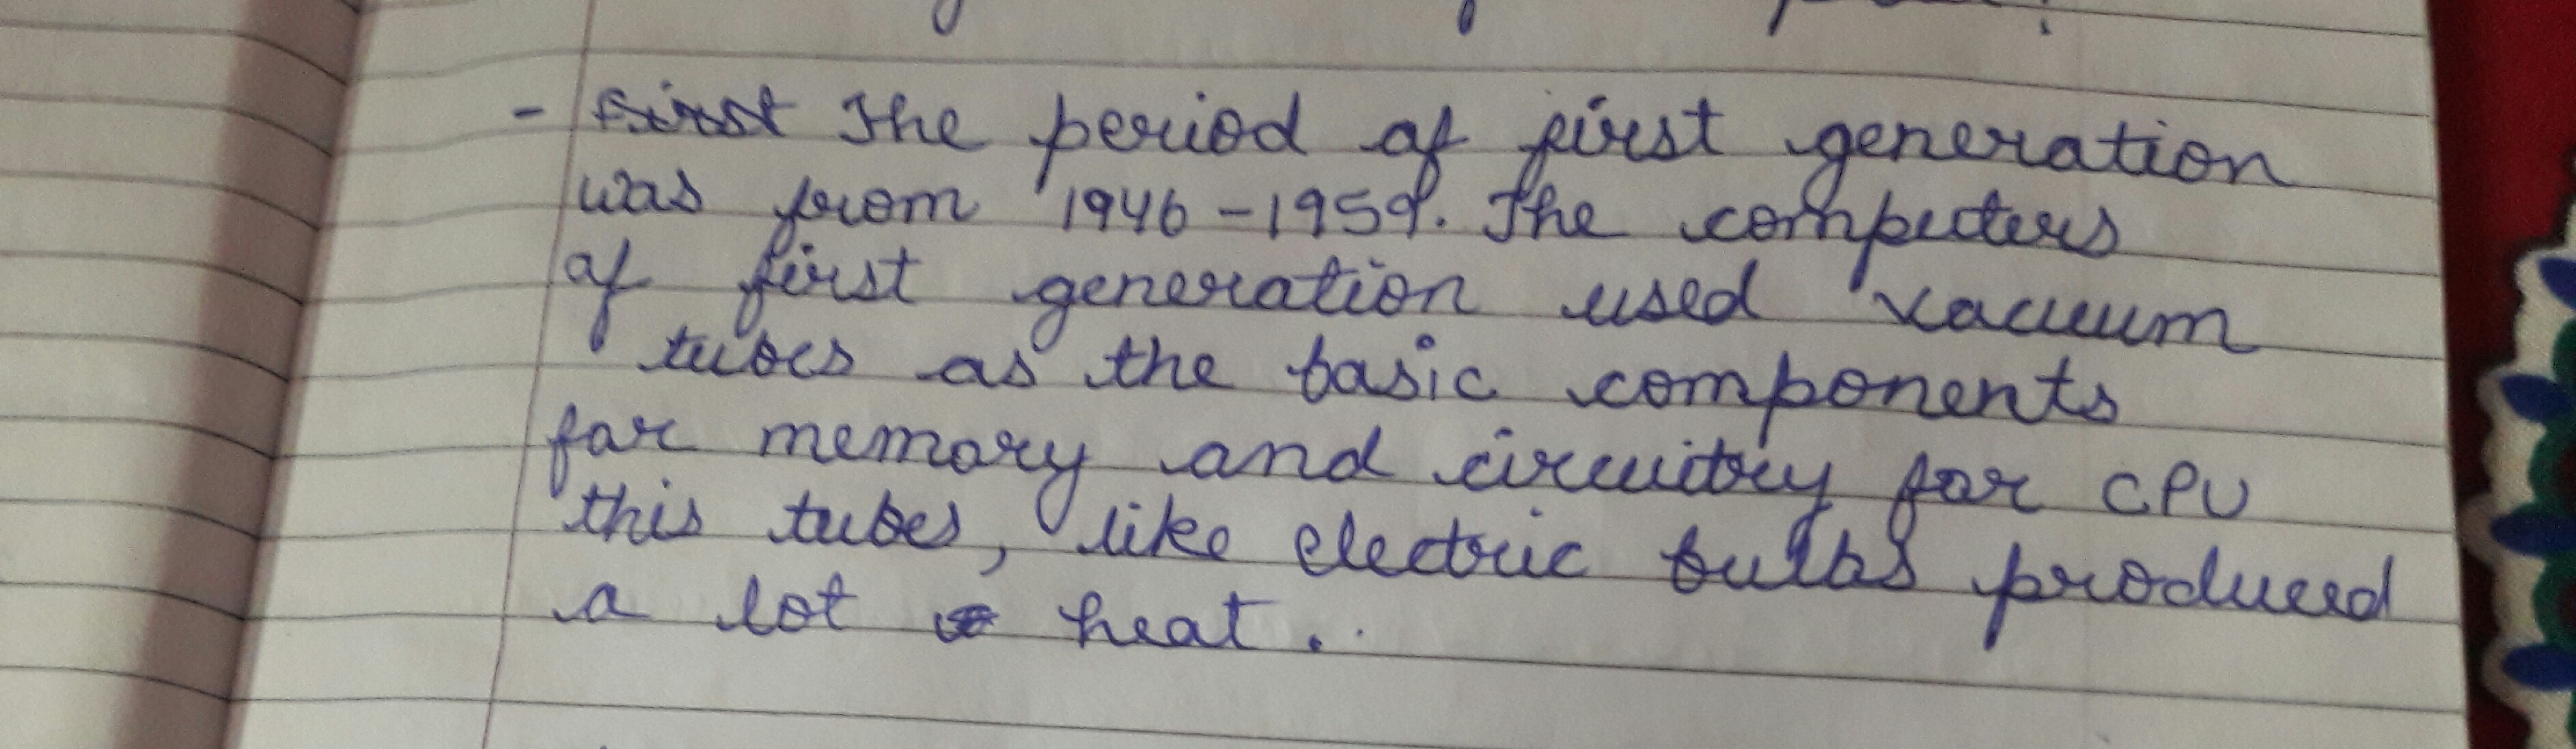 - First The period of first generation
was from 1946-1959. The computers
of first generation used vacuum
tubes as the basic components
for memory and circuitry for CPU
this tubes, like electric bulbs produced
a lot heat.